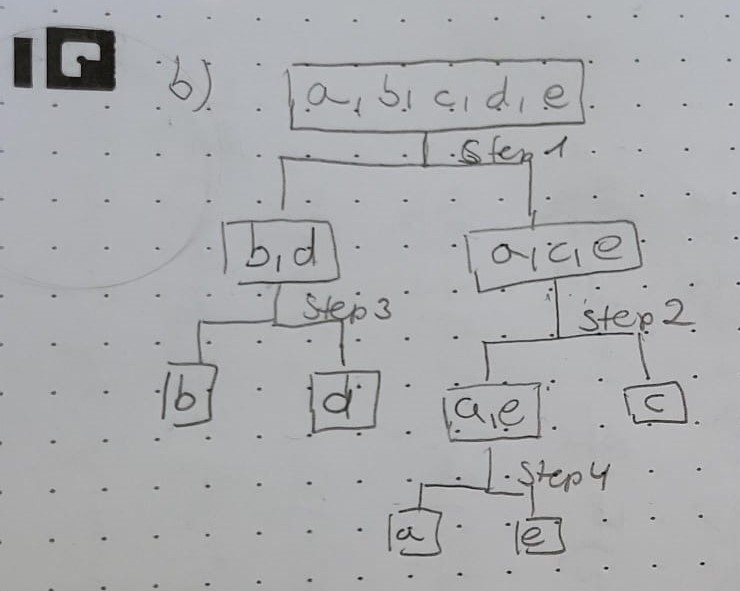 b)
a, b, c, d, e
Step 1
b, d
a, c, e
Step 3
Step 2
b
d
a, e
c
Step 4
a
e